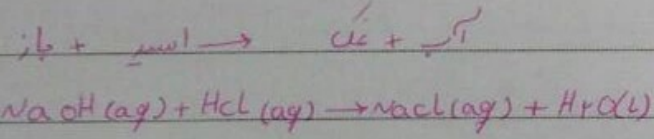 باز + اسید → نمک + آب
NaOH(aq) + HCl(aq) → NaCl(aq) + H۲O(l)